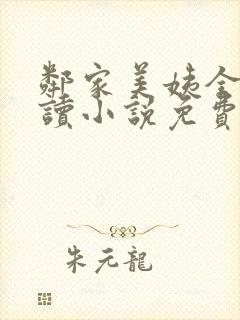 鄰家美姨全
讀小說免費
朱元龍